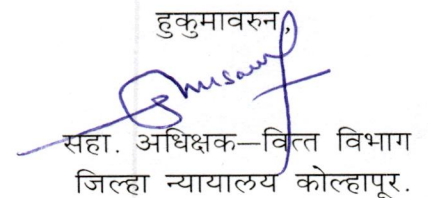 हुकुमावरुन,
सहा. अधिक्षक–वित्त विभाग
जिल्हा न्यायालय कोल्हापूर.